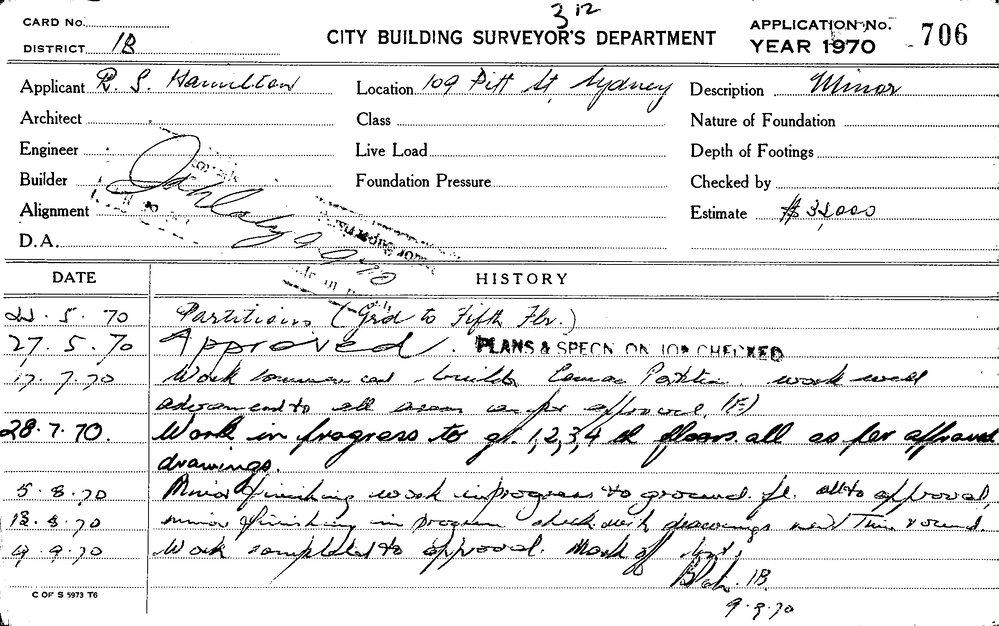 3 12
CARD No.
DISTRICT 1B
CITY BUILDING SURVEYOR'S DEPARTMENT
APPLICATION No.
YEAR 1970 706
Applicant R. S. Hamilton
Location 109 Pitt St, Sydney
Description Minor
Architect
Class
Nature of Foundation
Engineer
Live Load
Depth of Footings
Builder
Foundation Pressure
Checked by
Alignment
Estimate
D.A.
9 9 70
DATE HISTORY
5. 70 Partitions (Grd to Fifth Flr.)
27. 5. 70 Approved. PLANS & SPECN ON JOB CHECKED
17. 7. 70 Work commenced builder Partition work well
advanced to all approved.
28. 7. 70. Work in progress to gr. 1, 2, 3, 4 th floors all as per approved
drawings.
5. 8. 70 Minor finishing work in progress to ground fl. all to approval.
18. 8. 70 minor finishing in progress check with drawings next time round.
9. 9. 70 Work completed to approval. Mark off
1B.
9. 9. 70
C OF S 5973 T6